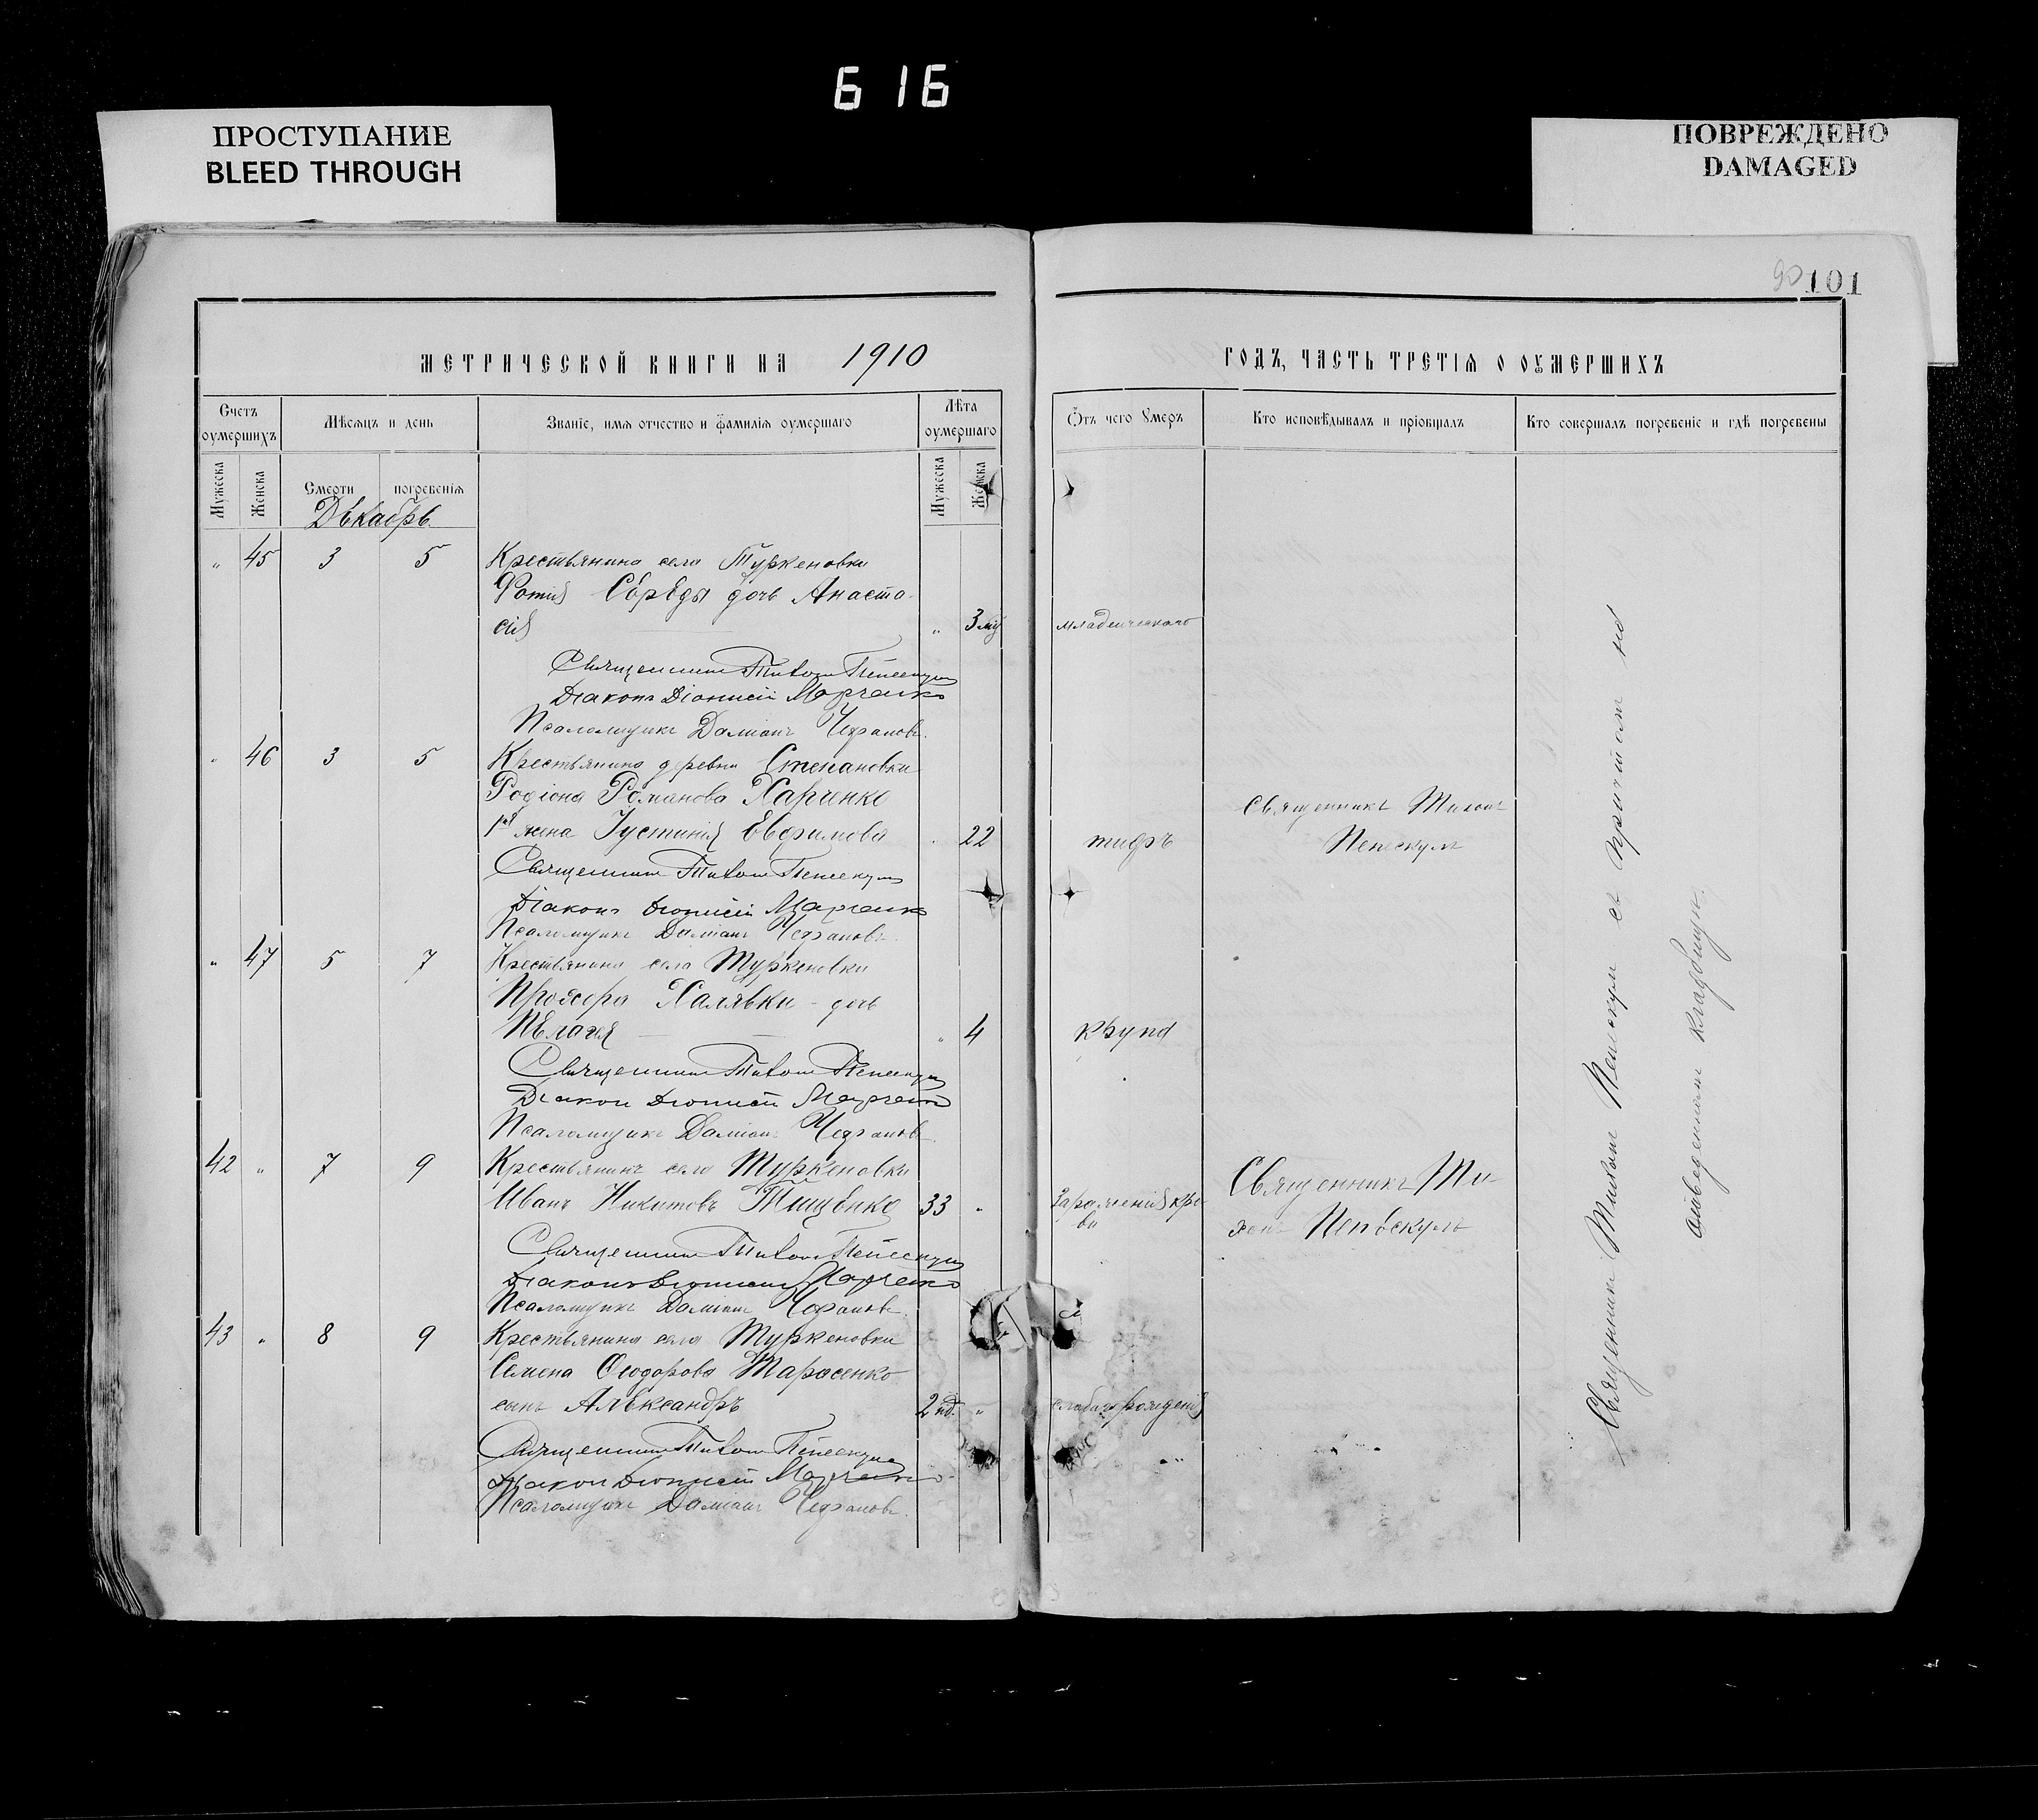 616
ПРОСТУПАНИЕ
BLEED THROUGH
ПОВРЕЖДЕНО
DAMAGED
90 101
МЕТРИЧЕСКОЙ КНИГИ НА 1910
ГОДЪ, ЧАСТЬ ТРЕТІЯ О ОУМЕРШИХЪ
Счетъ оумершихъ
Мѣсяцъ и день
Званіе, имя отчество и фамилія оумершаго
Лѣта оумершаго
Отъ чего умеръ
Кто исповѣдывалъ и пріобщалъ
Кто совершалъ погребеніе и гдѣ погребены
Мужеска
Женска
Смерти
погребенія
Мужеска
Женска
Декабрь
„ 45 3 5 Крестьянина села Туркеновки
Фотія Середы дочь Анаста-
сія „ 3 мц младенческаго
Священникъ Тихонъ Пепескулъ
Діаконъ Діонисій Марченко
Псаломщикъ Даміанъ
„ 46 3 5 Крестьянина деревни Степановки
Родіона Романова Харченко
1ая жена Іустинія Евфимова „ 22 тифъ
Священникъ Тихонъ
Пепескулъ
Священникъ Тихонъ Пепескулъ
Діаконъ Діонисій Марченко
Псаломщикъ Даміанъ
„ 47 5 7 Крестьянина села Туркеновки
Халявки - дочь
Пелагея „ 4 крупа
Священникъ Тихонъ Пепескулъ
Діаконъ Діонисій Марченко
Псаломщикъ Даміанъ
42 „ 7 9 Крестьянинъ села Туркеновки
Иванъ Никитовъ Тищенко 33 „ Зараженія кро-
ви
Священникъ Ти-
хонъ Пепескулъ
Священникъ Тихонъ Пепескулъ
Діаконъ Діонисій Марченко
Псаломщикъ Даміанъ
43 „ 8 9 Крестьянина села Туркеновки
Семена Ѳеодорова Тарасенко
сынъ Александръ 2 нд. „ слабаго рожденія
Священникъ Тихонъ Пепескулъ
Діаконъ Діонисій Марченко
Псаломщикъ Даміанъ
Священникъ Тихонъ Пепескулъ съ причтомъ на
отведенномъ кладбищѣ.